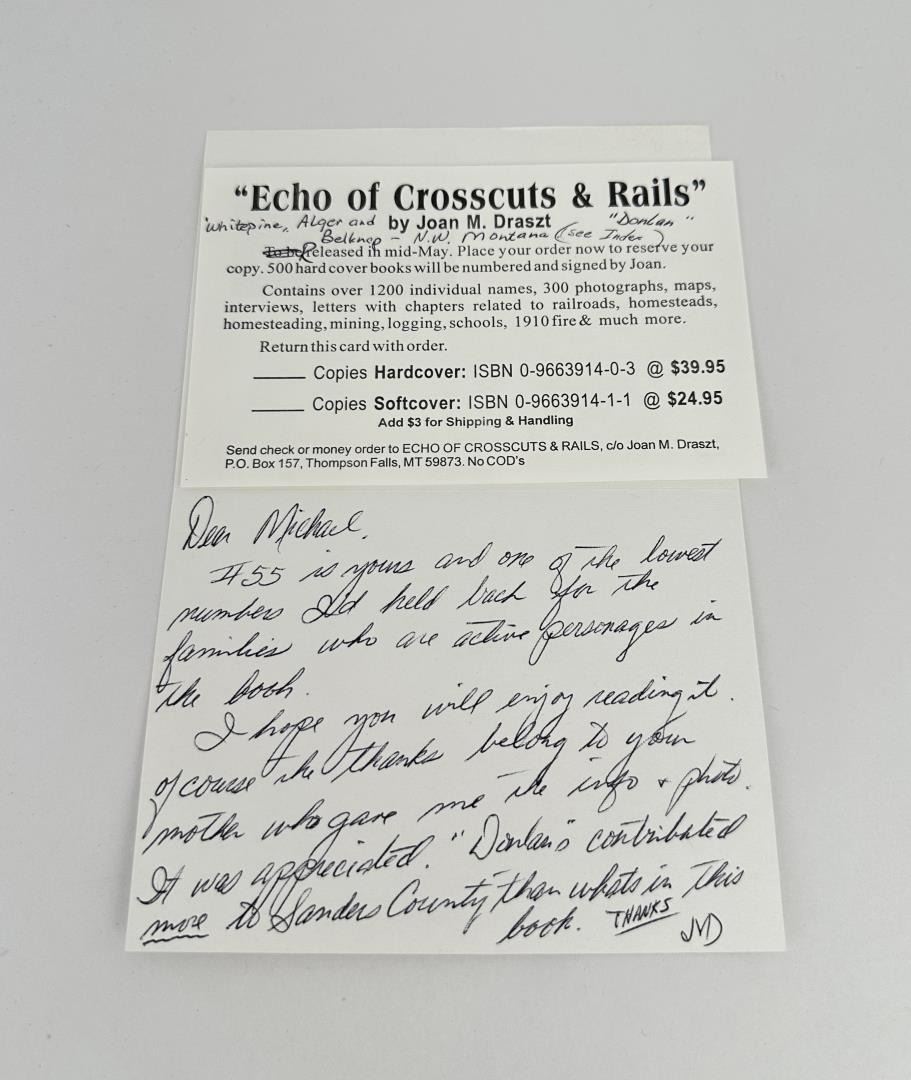 "Echo of Crosscuts & Rails"
"Whitepine, Alger and by Joan M. Draszt "Donlan"
Belknap - N.W. Montana (see Index)
To be Released in mid-May. Place your order now to reserve your
copy. 500 hard cover books will be numbered and signed by Joan.
Contains over 1200 individual names, 300 photographs, maps,
interviews, letters with chapters related to railroads, homesteads,
homesteading, mining, logging, schools, 1910 fire & much more.
Return this card with order.
______ Copies Hardcover: ISBN 0-9663914-0-3 @ $39.95
______ Copies Softcover: ISBN 0-9663914-1-1 @ $24.95
Add $3 for Shipping & Handling
Send check or money order to ECHO OF CROSSCUTS & RAILS, c/o Joan M. Draszt,
P.O. Box 157, Thompson Falls, MT 59873. No COD's
Dear Michael,
#55 is yours and one of the lowest
numbers I'd held back for the
families who are active personages in
the book.
I hope you will enjoy reading it.
of course the thanks belong to your
mother who gave me the info + photo.
It was appreciated. "Donlan's contributed
more to Sanders County than whats in this
book. THANKS
JMD